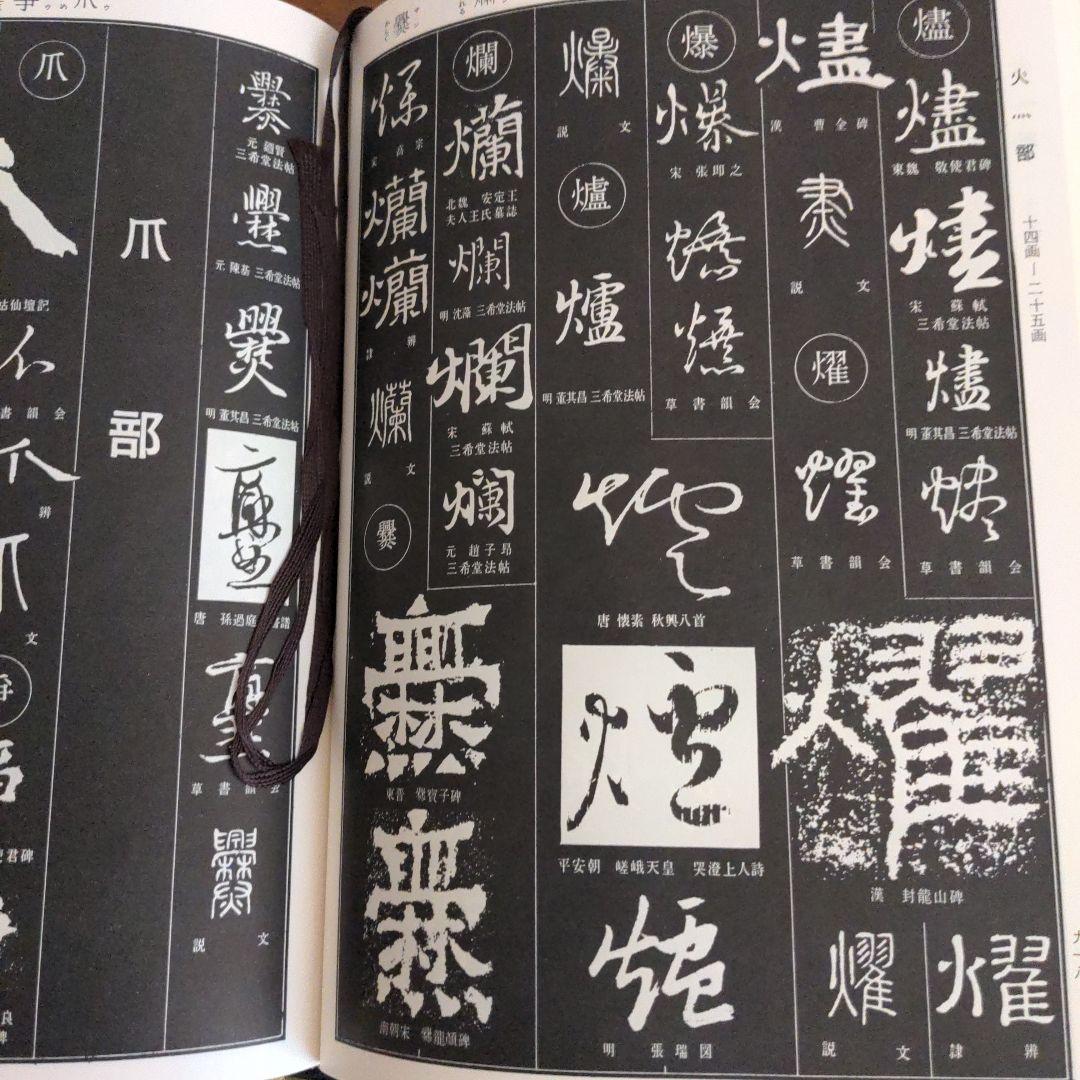 火 灬 部
十四画—二十五画
燼
燼
東魏 敬使君碑
燼
宋 蘇軾
三希堂法帖
燼
明 董其昌 三希堂法帖
燼
草書韻会
燼
漢 曹全碑
説文
燿
燿
草書韻会
燿
漢 封龍山碑
燿
隷辨
燿
説文
爆
爆
宋 張即之
草書韻会
爆
説文
爐
爐
明 董其昌 三希堂法帖
爐
唐 懐素 秋興八首
爐
平安朝 嵯峨天皇 哭澄上人詩
爐
明 張瑞図
爛
爛
北魏 安定王
夫人王氏墓誌
爛
明 沈藻 三希堂法帖
爛
宋 蘇軾
三希堂法帖
爛
元 趙子昂
三希堂法帖
宋高宗
爛
爛
隷辨
爛
説文
爨
爨
東晋 爨宝子碑
爨
南朝宋 爨龍顔碑
爨
三希堂法帖
爨
元 陳基 三希堂法帖
爨
明 董其昌 三希堂法帖
爨
唐 孫過庭 書譜
爨
草書韻会
爨
説文
爪部
爪
姑仙壇記
書韻会
辨
文